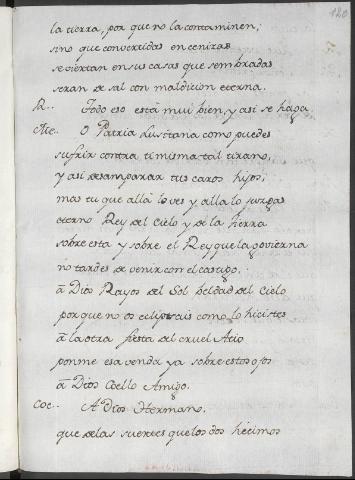 120
la tierra, por que no la contaminen,
sino que convertidas en ceniras
se viertan en sus casas que sembradas
seran de sal con maldicion eterna.
R.. Todo eso està mui bien, y asi se haga
Alc.. O Patria Lusitana como puedes
sufrir contra ti misma tal tirano,
y asi desamparar tus caros hijos;
mas tu que allà lo ves y alla lo juzgas
eterno Rey del Cielo y de la Tierra
sobre esta y sobre el Rey que la govierna
no tardes de venir con el castigo.
à Dios Rayos del Sol beldad del Cielo
por que no os eclipsais como lo hicistes
à la otra fiesta del cruel Atio
ponme esa venda ya sobre estos ojos
à Dios Coello Amigo.
Coe.. A Dios Hermano.
que de las suertes que los dos hecimos